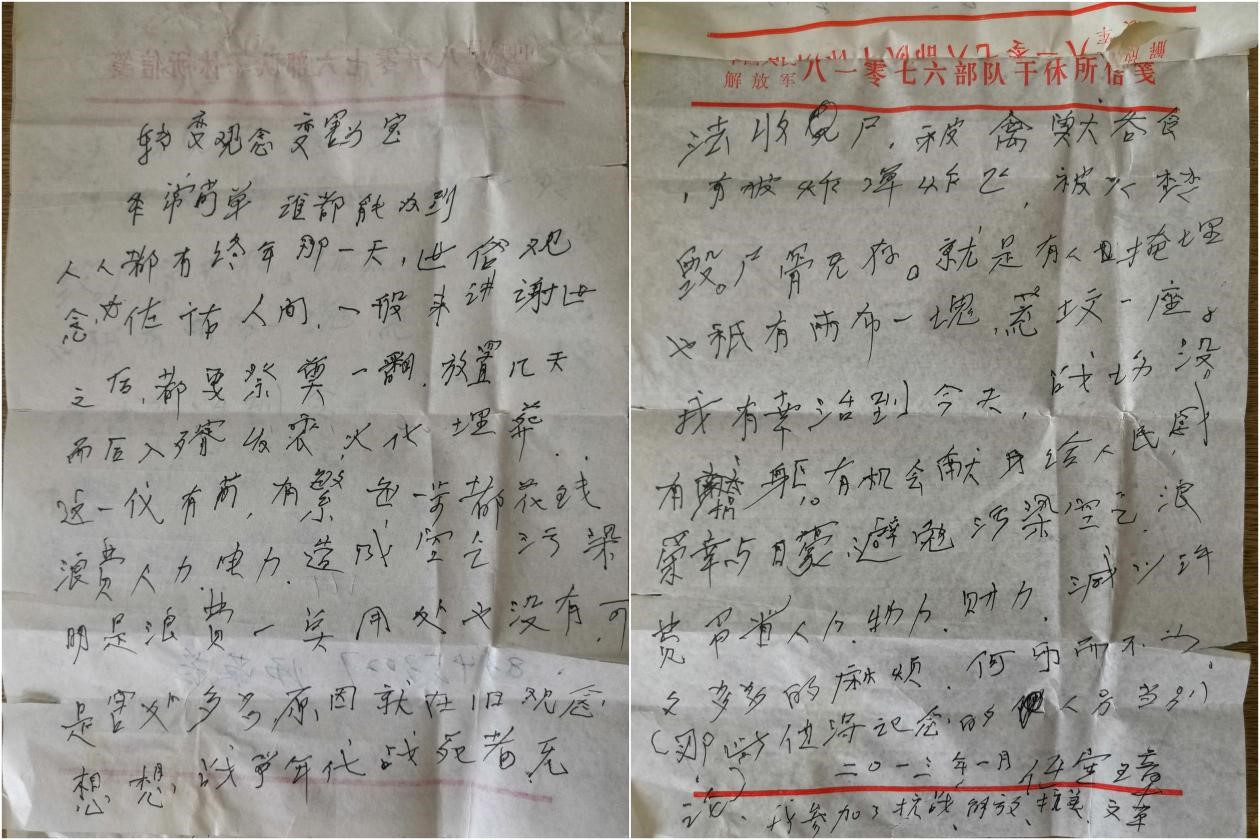 转变观念变害为宝
非常简单 谁都能改到
人人都有终年那一天，世俗观
念，为佐祐人间，一般来讲谢世
之后，都要祭奠一翻，放置几天
而后入殡收丧，火化 埋葬．
这一代有简，有繁 这一节都花钱
浪费人力电力．造成空气污染
明是浪费一点用处也没有，可
是害处多多原因就在旧观念，
想想，战争年代战死者无
解放军 八一零七六部队干休所信笺
法收尸，被禽兽吞食
，有被炸弹炸飞，被火焚
毁。尸骨无存。就是有人掩埋
也祇有两布一块，荒坟一座。
我有幸活到今天，战场没
有捐躯，有机会献身给人民，感
荣幸与自豪，避免污染空气．浪
费 节省人力．物力．财力．减少许
多多的麻烦．何乐而不为。
（那些值得记念的人另当别
论） 二〇一三年一月 任宝璋
我参加了抗战、解放、抗美、文革